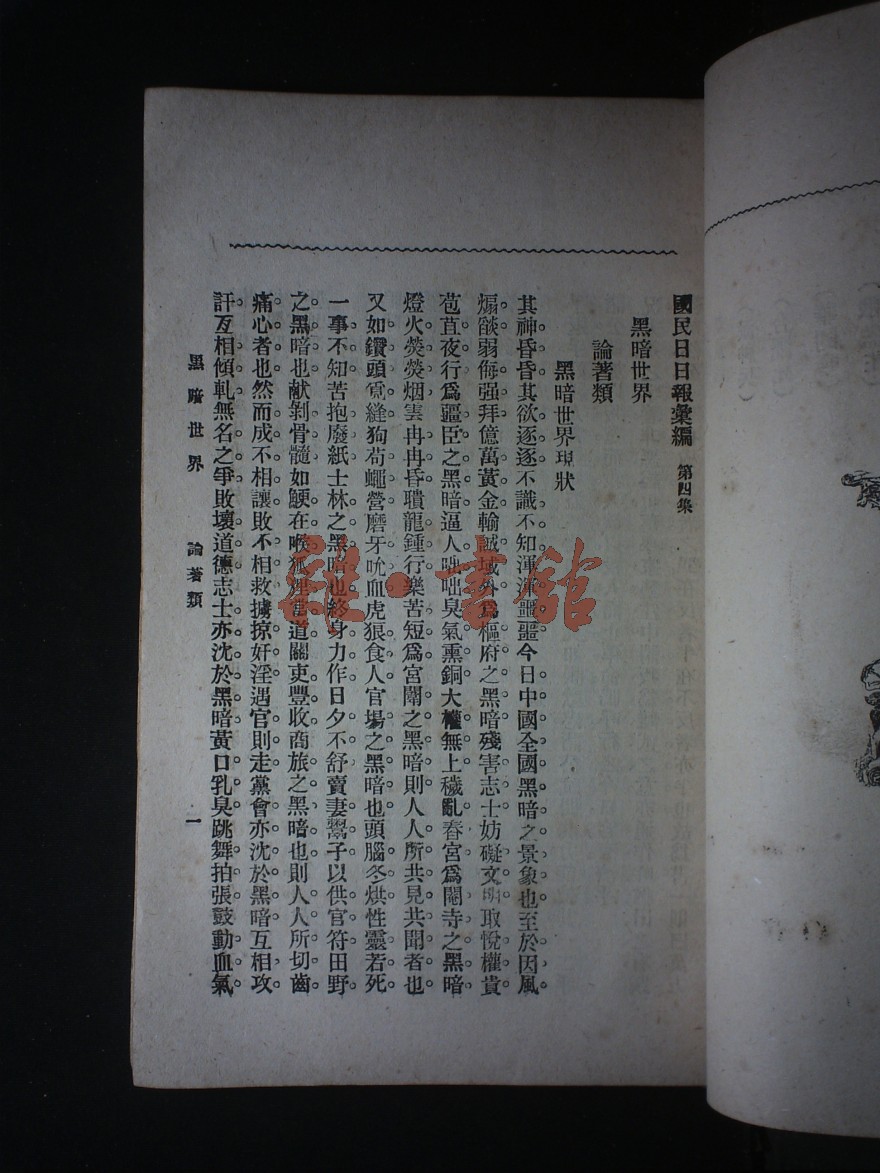 國民日日報彙編 第四集
黑暗世界
論著類
黑暗世界現狀
其神昏昏其欲逐逐不識不知渾渾噩噩今日中國全國黑暗之景象也至於因風
煽燄弱侮强拜億萬黃金輸誠域外爲樞府之黑暗殘害志士妨礙文明取悅權貴
苞苴夜行爲疆臣之黑暗逼人咄咄臭氣熏銅大權無上穢亂春宮爲閹寺之黑暗
燈火熒熒烟雲冉冉昏聵龍鍾行樂苦短爲宮闈之黑暗則人人所共見共聞者也
又如鑽頭覓縫狗苟蠅營磨牙吮血虎狼食人官塲之黑暗也頭腦冬烘性靈若死
一事不知苦抱廢紙士林之黑暗也終身力作日夕不舒賣妻鬻子以供官符田野
之黑暗也献剝骨髓如鯁在喉狐狸當道關吏豐收商旅之黑暗也則人人所切齒
痛心者也然而成不相讓敗不相救擄掠奸淫遇官則走黨會亦沈於黑暗互相攻
訐互相傾軋無名之爭敗壞道德志士亦沈於黑暗黃口乳臭跳舞拍張鼓動血氣
黑暗世界 論著類 一
雜·書館